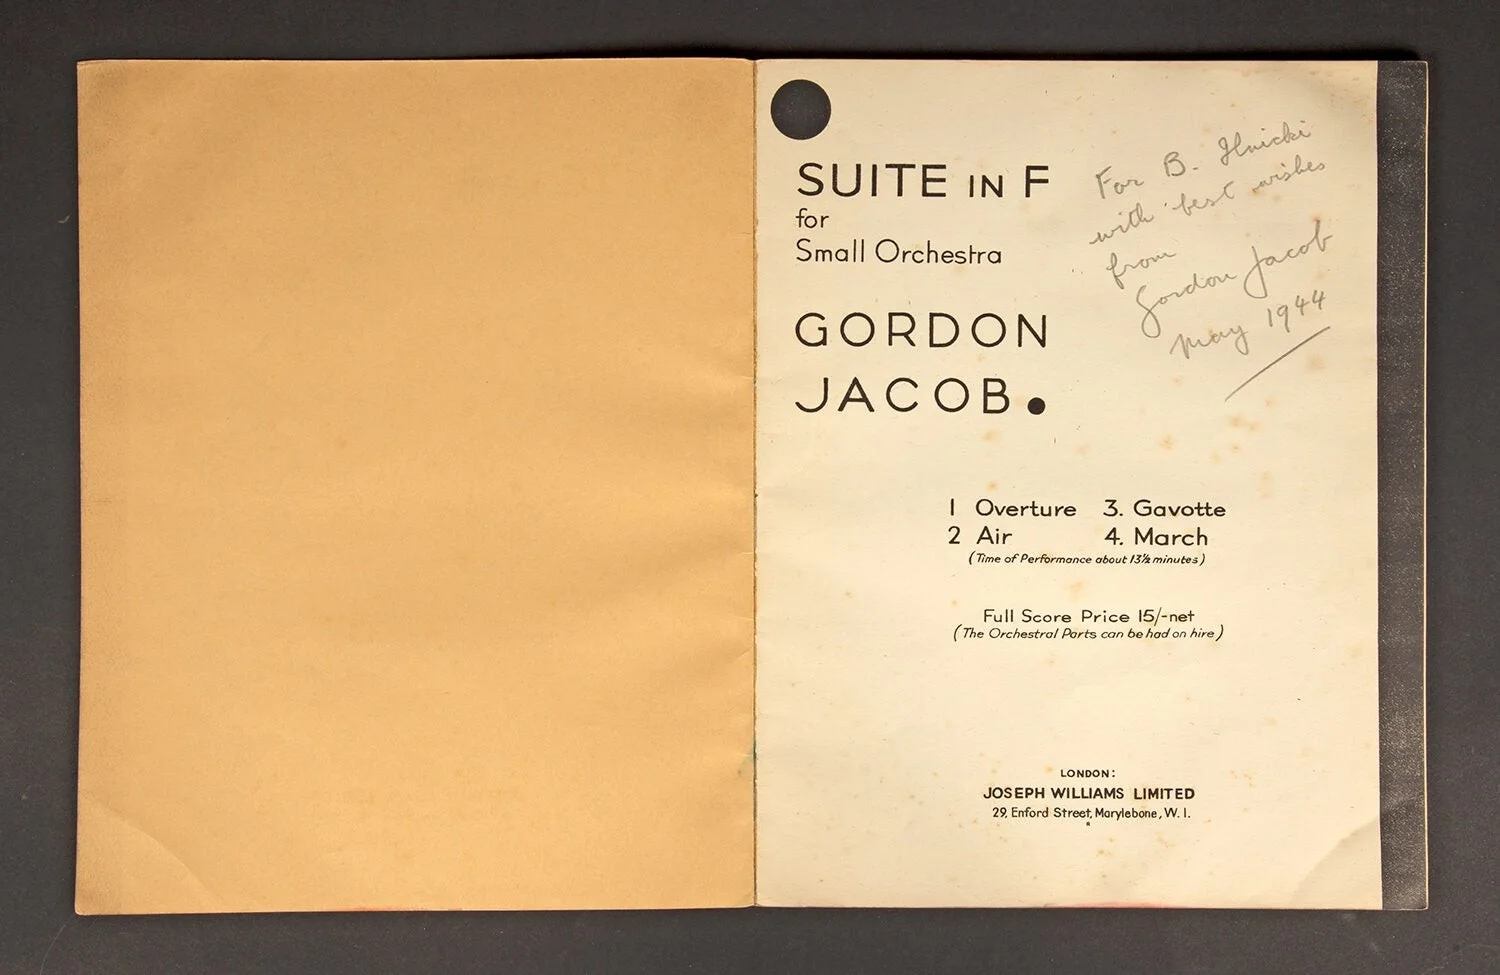 SUITE IN F
for
Small Orchestra
GORDON
JACOB.
For B. Hnicki
with best wishes
from
Gordon Jacob
May 1944
1 Overture 3. Gavotte
2 Air 4. March
(Time of Performance about 13½ minutes)
Full Score Price 15/-net
(The Orchestral Parts can be had on hire)
LONDON:
JOSEPH WILLIAMS LIMITED
29, Enford Street, Marylebone, W. 1.